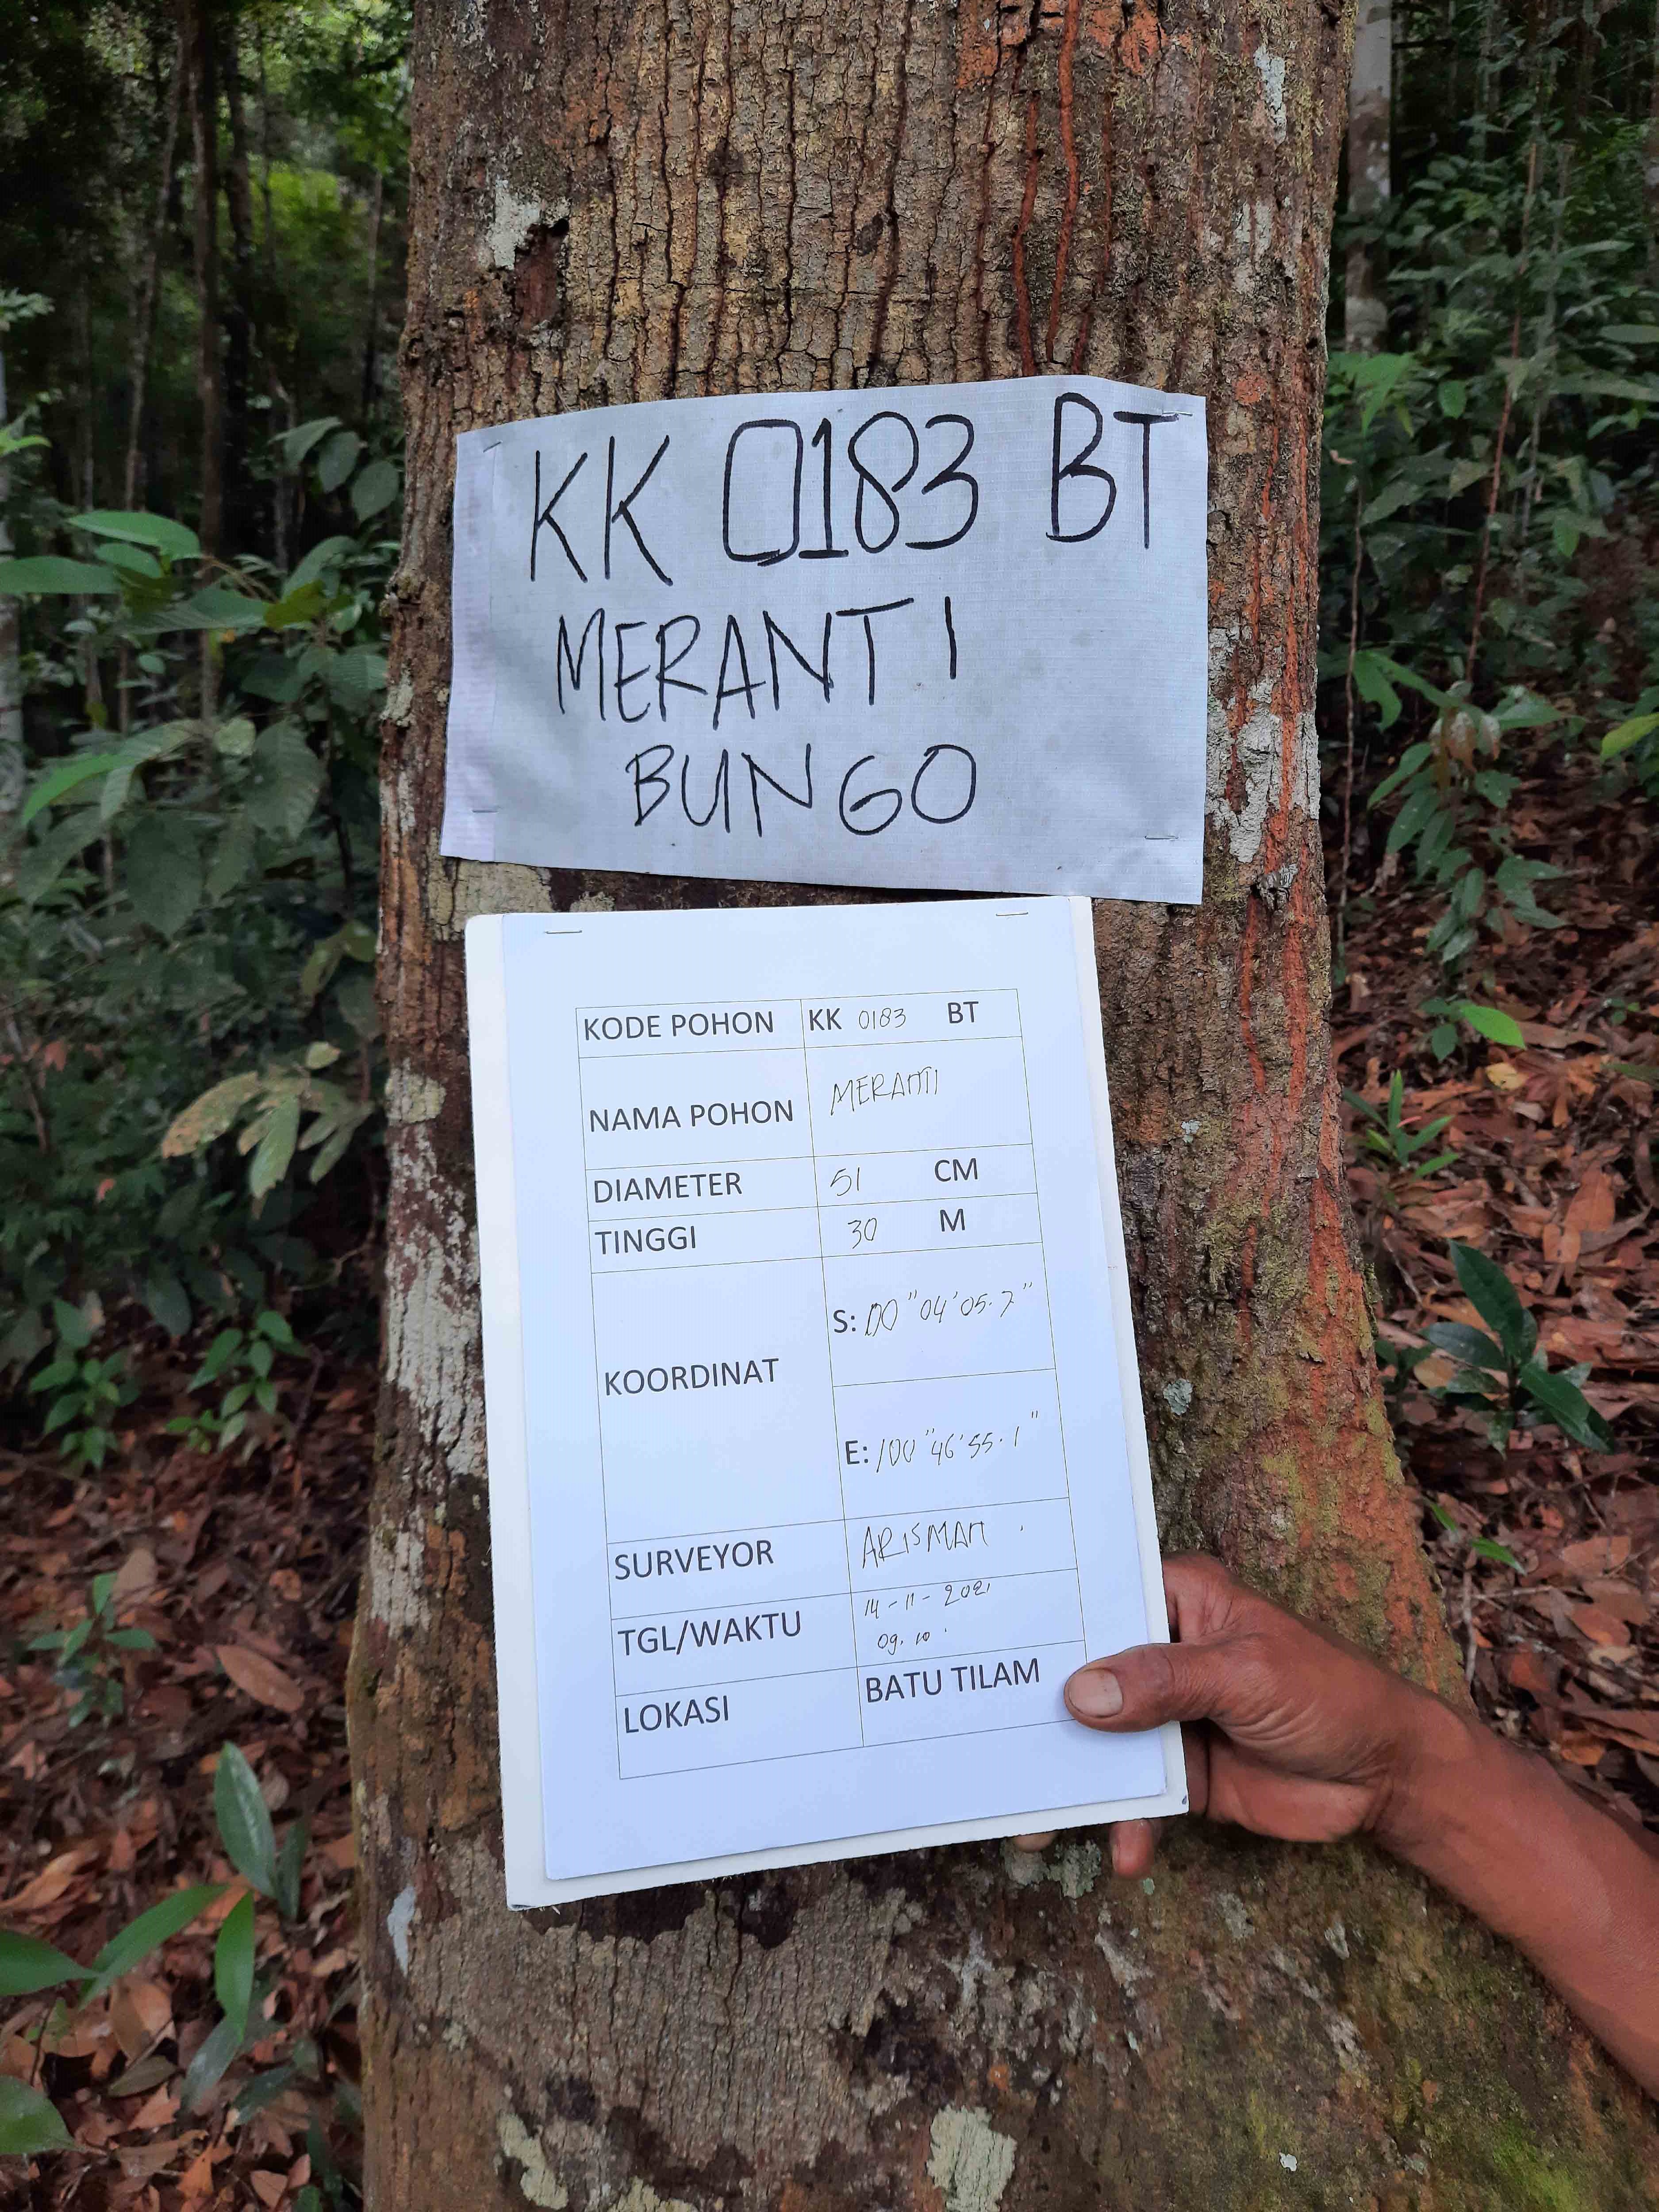 KK 0183 BT
MERANTI
BUNGO
KODE POHON KK 0183 BT
NAMA POHON MERANTI
DIAMETER 51 CM
TINGGI 30 M
KOORDINAT
S: 00 "04'05.7"
E: 100 "46'55.1"
SURVEYOR ARISMAN
TGL/WAKTU 14-11-2021
09.10
LOKASI BATU TILAM